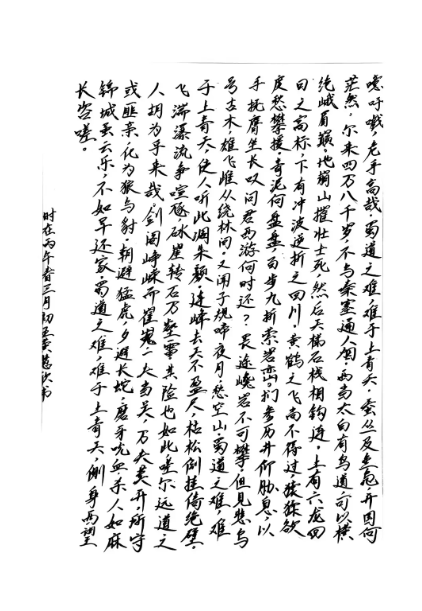 噫吁嚱，危乎高哉，蜀道之难，难于上青天，蚕丛及鱼凫，开国何
茫然，尔来四万八千岁，不与秦塞通人烟，西当太白有鸟道，可以横
绝峨眉巅，地崩山摧壮士死，然后天梯石栈相钩连，上有六龙回
日之高标，下有冲波逆折之回川，黄鹤之飞尚不得过，猿猱欲
度愁攀援，青泥何盘盘，百步九折萦岩峦，扪参历井仰胁息，以
手抚膺坐长叹，问君西游何时还？畏途巉岩不可攀，但见悲鸟
号古木，雄飞雌从绕林间，又闻子规啼夜月，愁空山，蜀道之难，难
于上青天，使人听此凋朱颜，连峰去天不盈尺，枯松倒挂倚绝壁，
飞湍瀑流争喧豗，砯崖转石万壑雷，其险也如此，嗟尔远道之
人胡为乎来哉，剑阁峥嵘而崔嵬，一夫当关，万夫莫开，所守
或匪亲，化为狼与豺，朝避猛虎，夕避长蛇，磨牙吮血，杀人如麻
锦城虽云乐，不如早还家，蜀道之难，难于上青天，侧身西望
长咨嗟。
时在丙午春三月初五